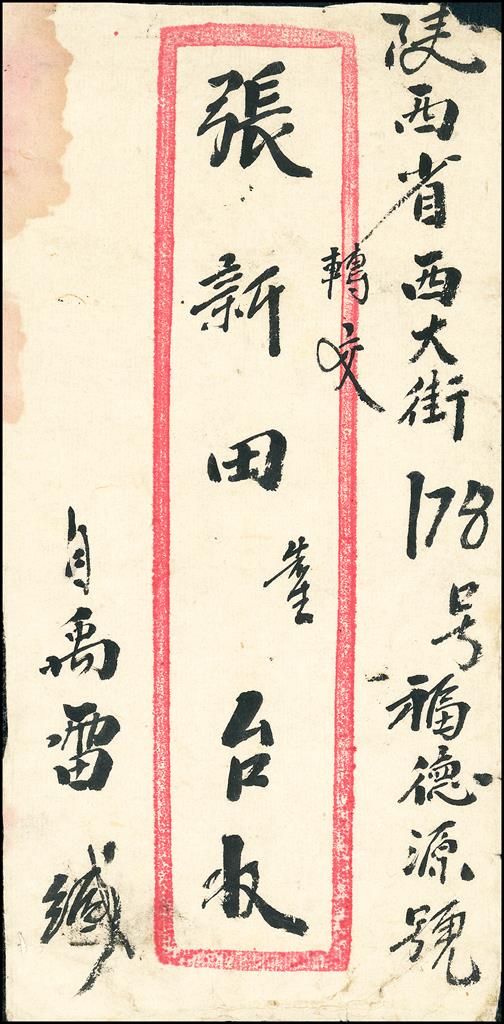 陕西省西大街178号福德源號
轉交
張新田先生台收
自禹雷缄